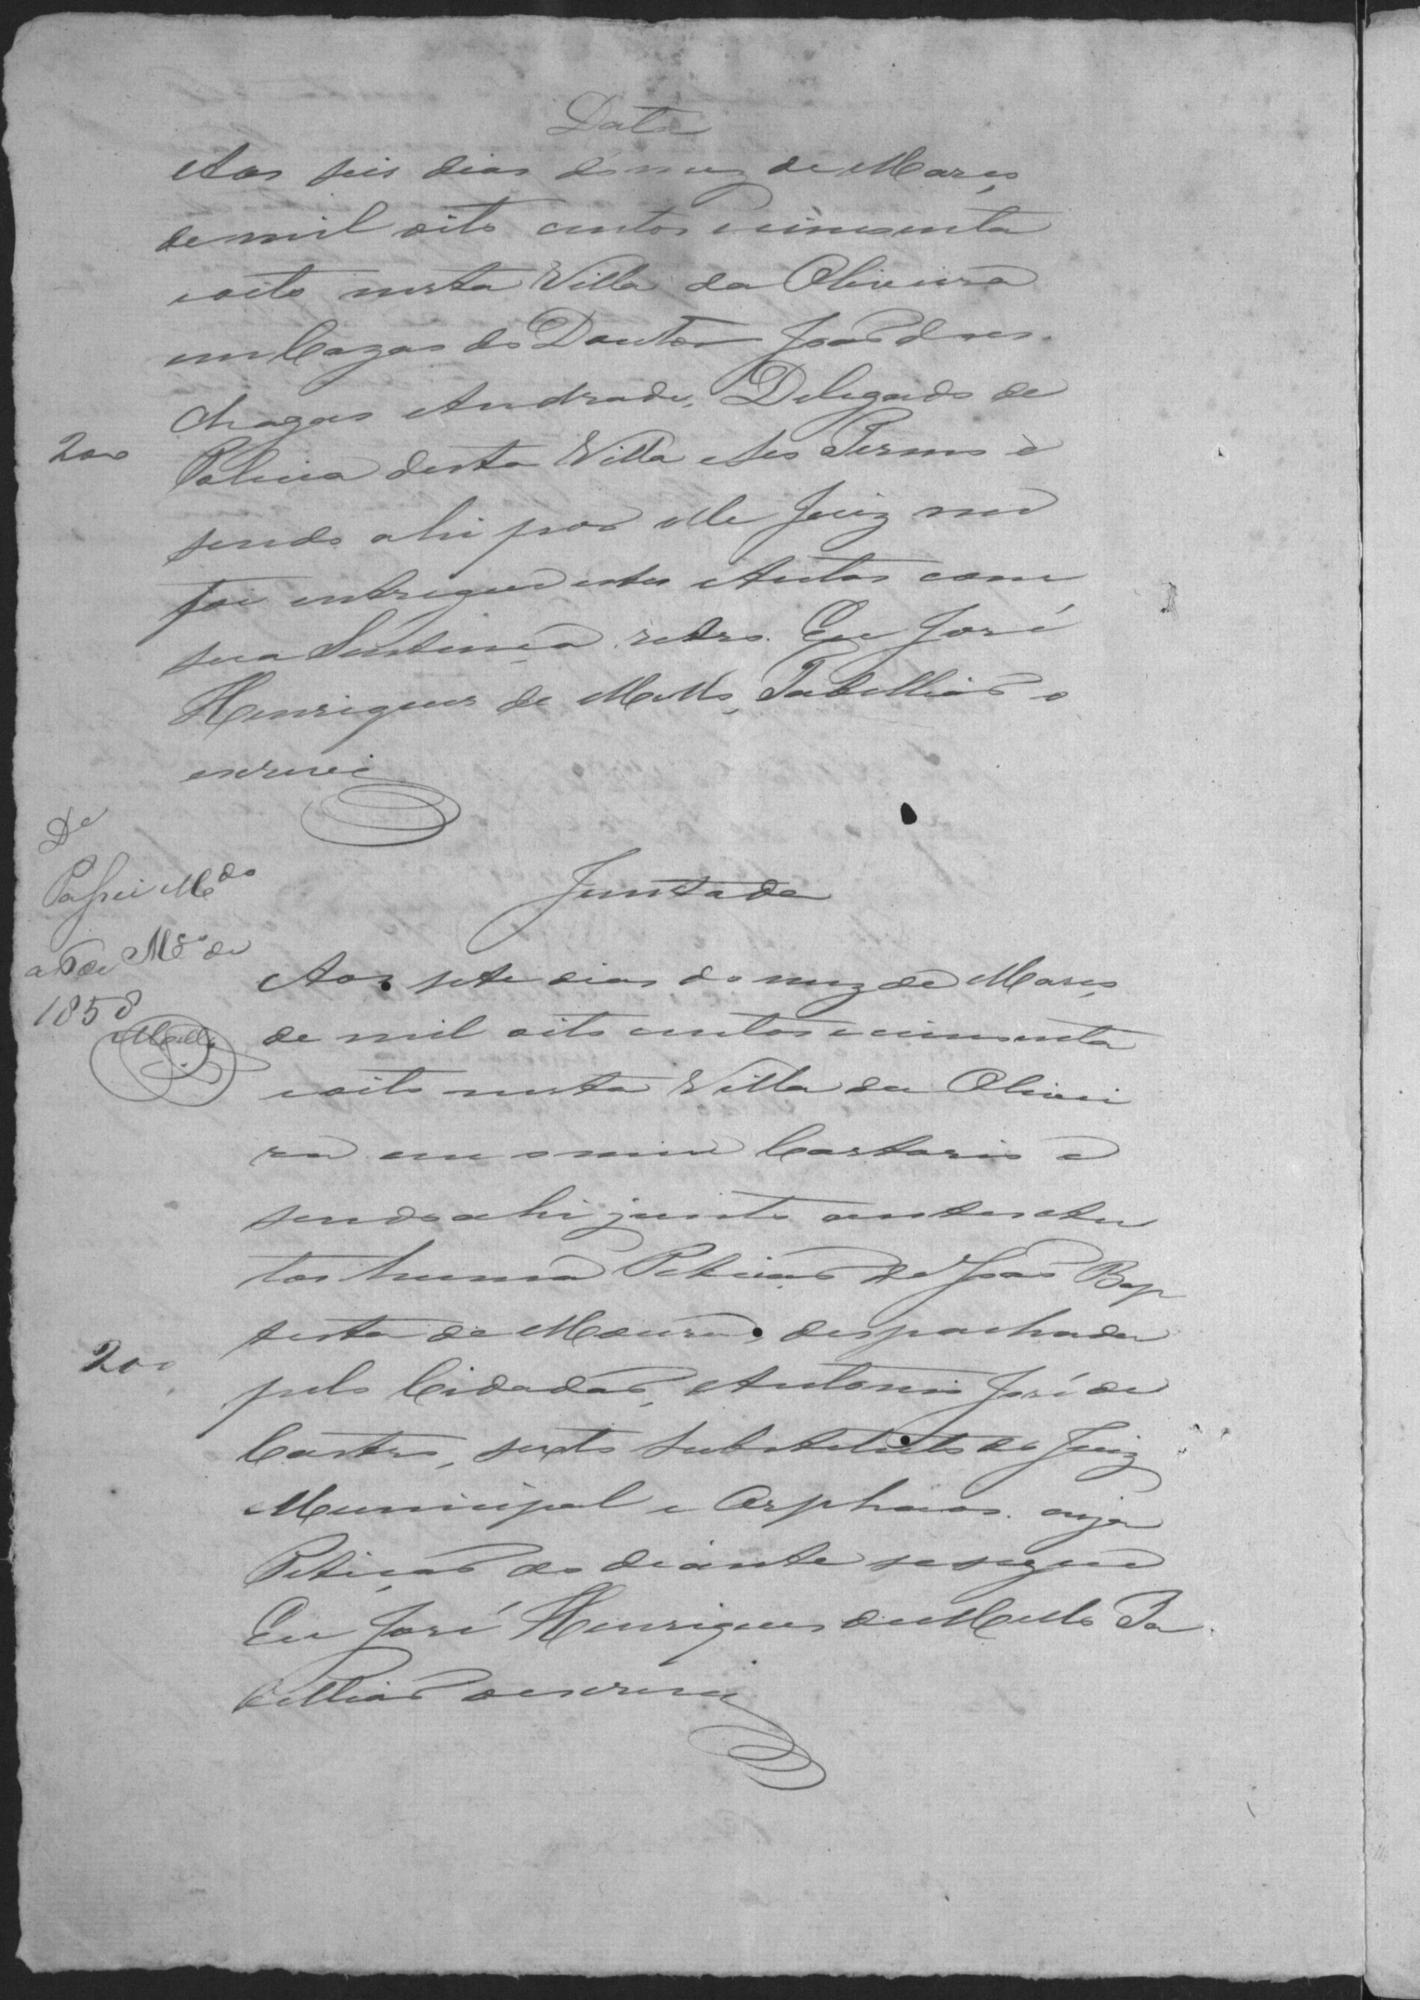 Data
Aos seis dias do mez de Março
de mil oito centos e cincoenta
e oito nesta Villa da Oliveira
em Cazas do Doutor João das
Chagas Andrade, Delegado de
200
Policia desta Villa e seo Termo e
sendo ahi por elle Juiz me
foi entregue estes Autos com
sua Sentença retro. Eu José
Henriques de Mello, Tabellião o
escrevi
De
Passei M.do
a 6 de M.ço de
1858
Mello
Juntada
Aos sete dias do mez de Março
de mil oito centos e cincoenta
e oito nesta Villa da Olivei
ra em o meu Cartorio e
sendo ahi junto a estes Au
tos huma Petição de João Bap
tista de Moura, despachada
200
pelo Cidadão, Antonio José de
Castro, sexto substituto do Juiz
Municipal e Orphaos. cuja
Petição ao diante se segue
Eu José Henriques de Mello Ta
bellião o escrevi